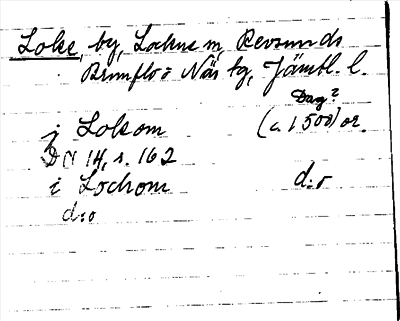 Loke, by, Lockne sn, Revsunds
Brunflo o Näs tg, Jämtl. l.
Dag?
j Lokom (c. 1500) or.
DN 14, s. 162
i Lochom d:o
d:o